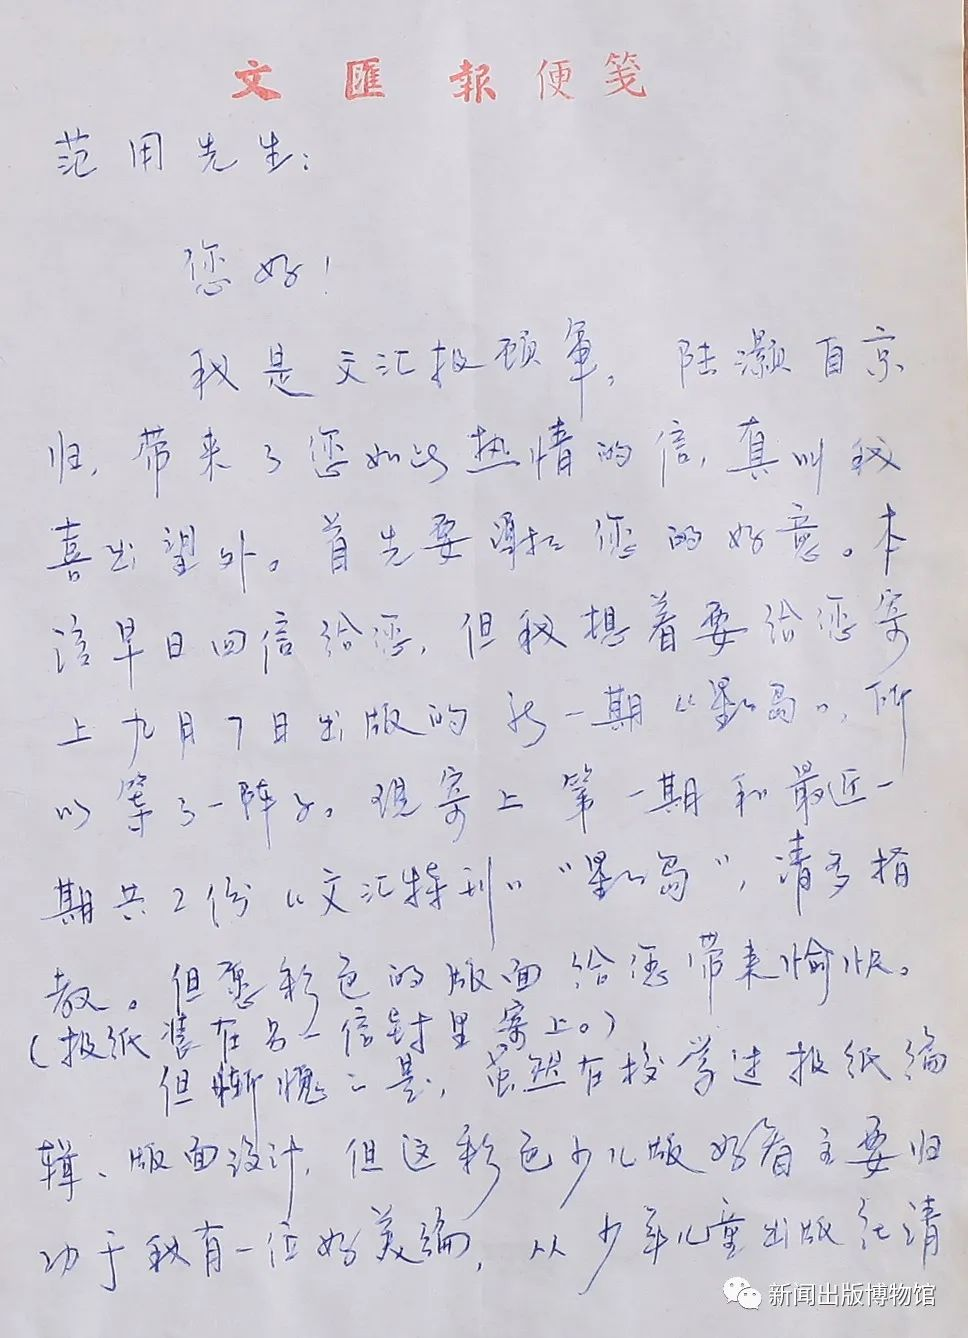 文匯報便箋
范用先生：
您好！
我是文汇报顾军，陆灏自京
归，带来了您如此热情的信，真叫我
喜出望外。首先要谢谢您的好意。本
该早日回信给您，但我想着要给您寄
上九月7日出版的新一期《星星岛》，所
以等了一阵子。现寄上第一期和最近一
期共2份《文汇特刊》“星星岛”，请多指
教。但愿彩色的版面给您带来愉快。
（报纸装在另一信封里寄上。）
但惭愧的是，虽然在校学过报纸编
辑、版面设计，但这彩色少儿版好看主要归
功于我有一位好美编，从少年儿童出版社请
新闻出版博物馆